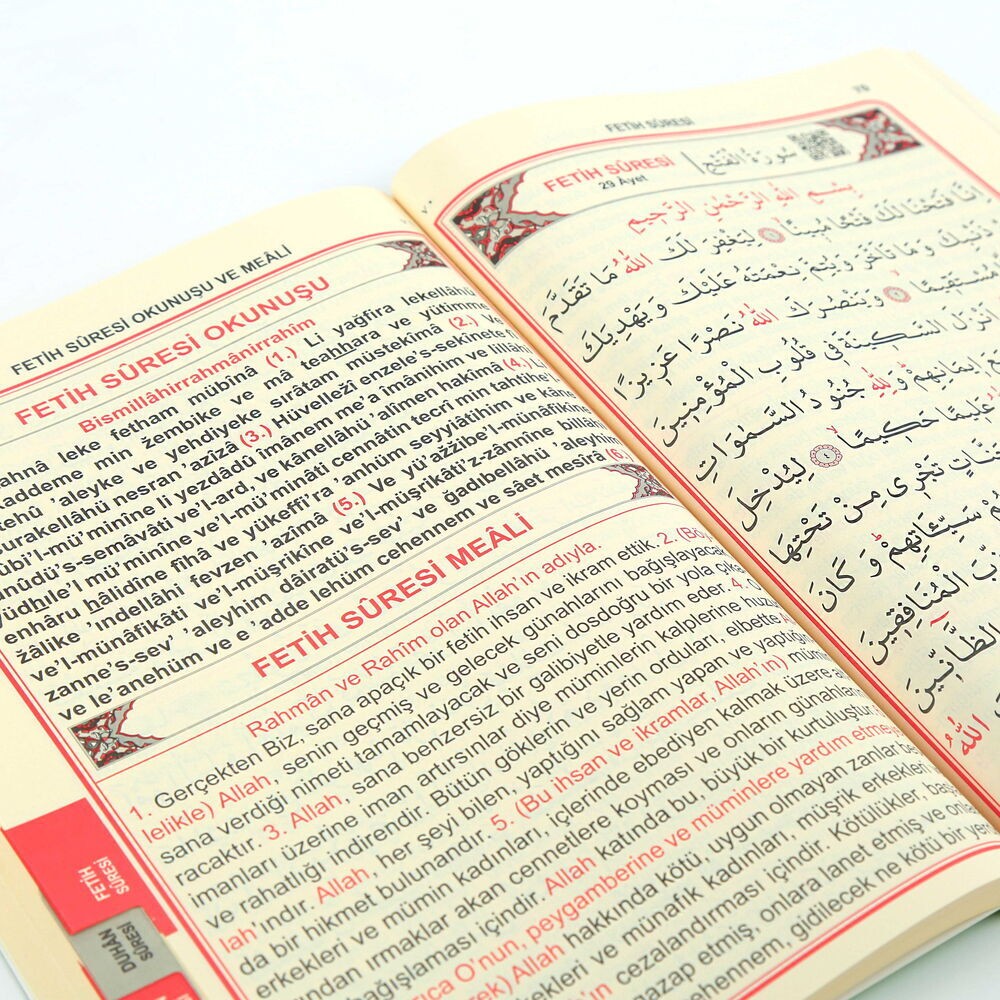 FETİH SÛRESİ OKUNUŞU VE MEÂLİ
FETİH SÛRESİ OKUNUŞU
Bismillâhirrahmânirrahîm
leke fetham mübînâ (1.) Li yağfira lekellâhü
min zembike ve mâ teahhara ve yütimme
'aleyke ve yehdiyeke sırâtam müstekîmâ (2.) Ve
nesran 'azîzâ (3.) Hüvellezî enzele's-sekînete
li yezdâdû îmânem me'a îmânihim ve lillâhi
semâvâti ve'l-ard, ve kânellâhü 'alîmen hakîmâ (4.)
mü'minîne ve'l-mü'minâti cennâtin tecrî min tahtihe'l
enhâru hâlidîne fîhâ ve yükeffi'ra 'anhüm seyyiâtihim ve kâne
zâlike 'indellâhi fevzen 'azîmâ (5.) Ve yü'azzibe'l-münâfikîne
ve'l-münâfikâti ve'l-müşrikîne ve'l-müşrikâti'z-zânnîne billâhi
zanne's-sev' 'aleyhim dâiratü's-sev' ve ğadibellâhü 'aleyhim
ve le'anehüm ve e'adde lehüm cehenneme ve sâet mesîrâ (6)
FETİH SÛRESİ MEÂLİ
Rahmân ve Rahîm olan Allah'ın adıyla.
1. Gerçekten Biz, sana apaçık bir fetih ihsan ve ikram ettik. 2. (Böy
lelikle) Allah, senin geçmiş ve gelecek günahlarını bağışlayacak
sana verdiği nimeti tamamlayacak ve seni dosdoğru bir yola çıka
racaktır. 3. Allah, sana benzersiz bir galibiyetle yardım eder. 4.
imanları üzerine iman artırsınlar diye müminlerin kalplerine huzu
ve rahatlığı indirendir. Bütün göklerin ve yerin orduları, elbette A
lah'ındır. Allah, her şeyi bilen, yaptığını sağlam yapan ve yaptığın
da bir hikmet bulunandır. 5. (Bu ihsan ve ikramlar, Allah'ın) mümi
erkekleri ve mümin kadınları, içlerinde ebediyen kalmak üzere
ından ırmaklar akan cennetlere koyması ve onların günahların
bağışlaması içindir. Allah katında bu, büyük bir kurtuluştur
O'nun, peygamberine ve müminlere yardım etme
Allah hakkında kötü, uygun olmayan zanlar be
ve münafık kadınları, müşrik erkekleri
cezalandırması içindir. Kötülükler, başla
gazap etmiş, onlara lanet etmiş ve onla
gidilecek ne kötü bir yer
FETİH
SÛRESİ
DUHAN
SÛRESİ
FETİH SÛRESİ
FETİH SÛRESİ
29 Âyet
سُورَةُ الْفَتْحِ
بِسْمِ اللهِ الرَّحْمٰنِ الرَّحِيمِ
اِنَّا فَتَحْنَا لَكَ فَتْحًا مُبِينًا ١ لِيَغْفِرَ لَكَ اللهُ مَا تَقَدَّمَ
ذَنْبِكَ وَمَا تَاَخَّرَ وَيُتِمَّ نِعْمَتَهُ عَلَيْكَ وَيَهْدِيَكَ
مُسْتَقِيمًا ٢ وَيَنْصُرَكَ اللهُ نَصْرًا عَزِيزًا
اَنْزَلَ السَّكِينَةَ فِى قُلُوبِ الْمُؤْمِنِينَ
اِيمَانِهِمْ وَلِلّٰهِ جُنُودُ السَّمٰوَاتِ
عَلِيمًا حَكِيمًا ٤ لِيُدْخِلَ
جَنَّاتٍ تَجْرِى مِنْ تَحْتِهَا
سَيِّئَاتِهِمْ وَكَانَ
الْمُنَافِقِينَ
الظَّانِّينَ
اللهُ